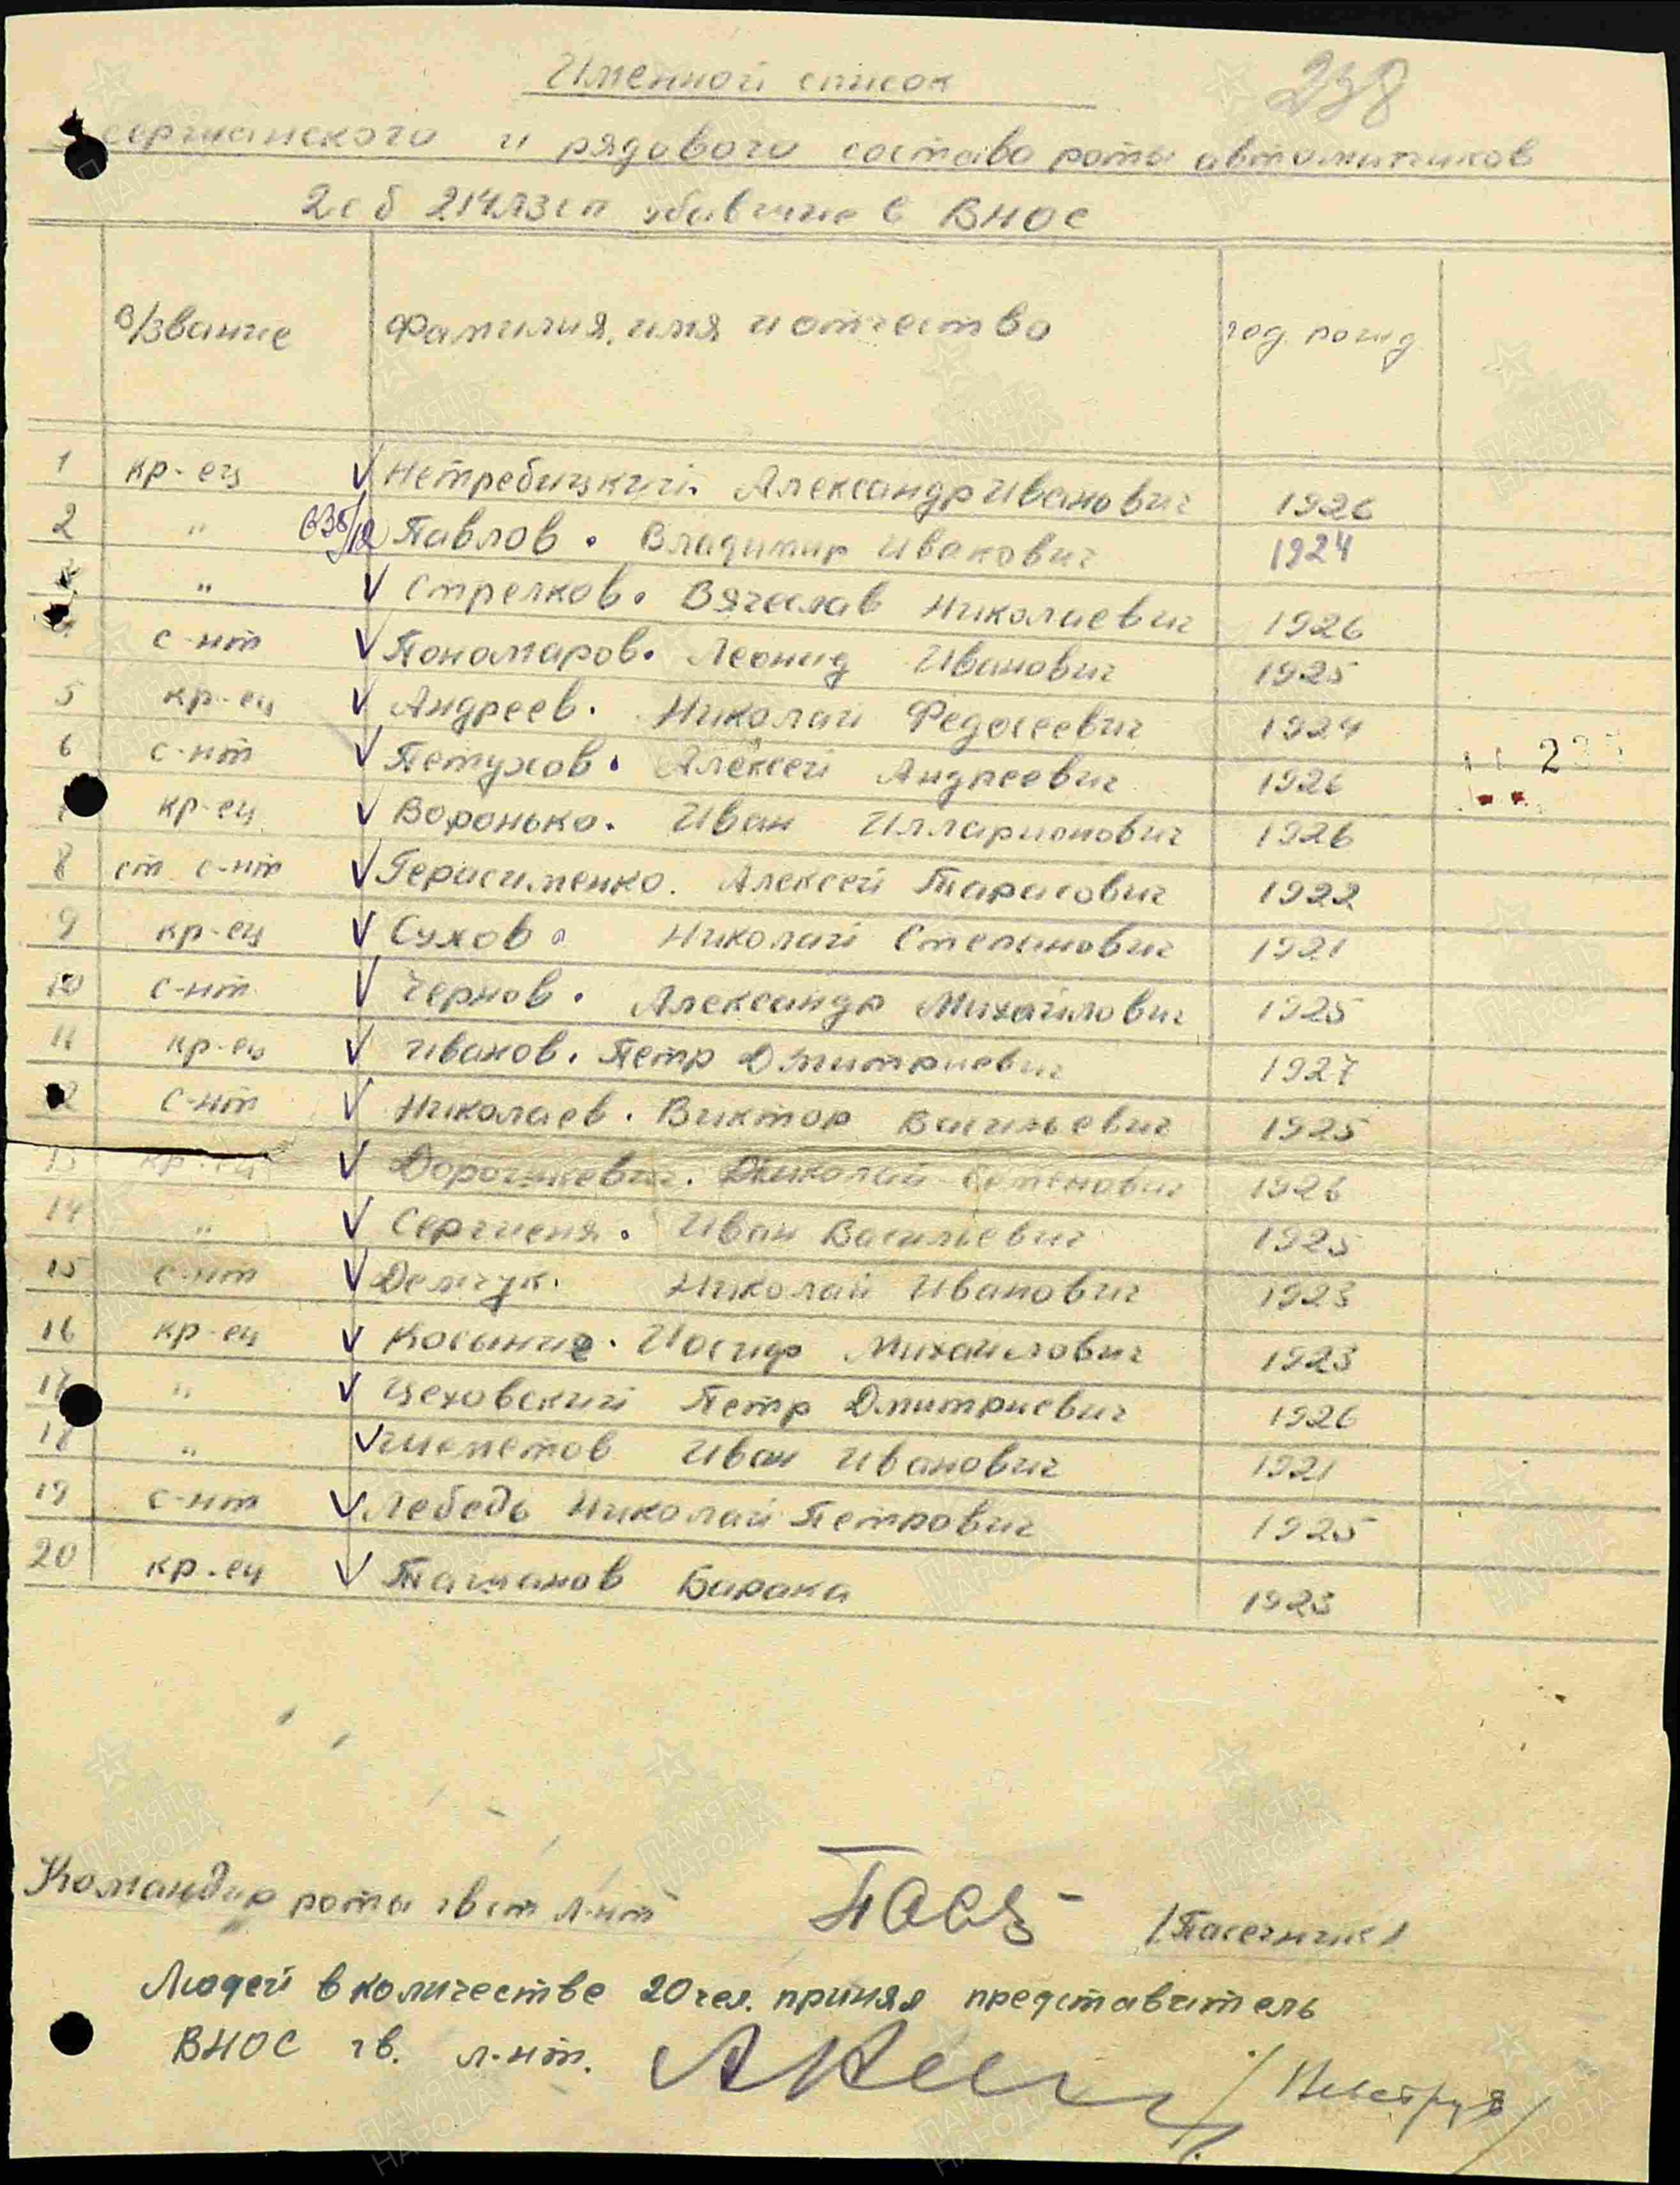 Именной список
238
сержанского и рядового состава роты автоматчиков
2сб 214 АЗСП убывшие в ВНОС
в/звание Фамилия, имя и отчество год рожд
1 кр-ец Нетребицкий. Александр Иванович 1926
2 " Павлов. Владимир Иванович 1924
" Стрелков. Вячеслав Николаевич 1926
с-нт Пономаров. Леонид Иванович 1925
5 кр-ец Андреев. Николай Федосеевич 1924
6 с-нт Петухов. Алексей Андреевич 1926
кр-ец Воронько. Иван Илларионович 1926
8 ст с-нт Герасименко. Алексей Тарасович 1922
9 кр-ец Сухов. Николай Степанович 1921
10 с-нт Чернов. Александр Михайлович 1925
11 кр-ец Иванов. Петр Дмитриевич 1927
12 с-нт Николаев. Виктор Васильевич 1925
13 кр-ец Николай Семенович 1926
14 " Сергиеня. Иван Васильевич 1925
15 с-нт Демчук. Николай Иванович 1923
16 кр-ец Иосиф Михайлович 1923
17 " Цеховский Петр Дмитриевич 1926
18 " Иван Иванович 1921
19 с-нт Лебедь Николай Петрович 1925
20 кр-ец Барака 1923
Командир роты гв ст л-нт /Пасечник/
Людей в количестве 20 чел. принял представитель
ВНОС гв. л-нт.
ПАМЯТЬ НАРОДА